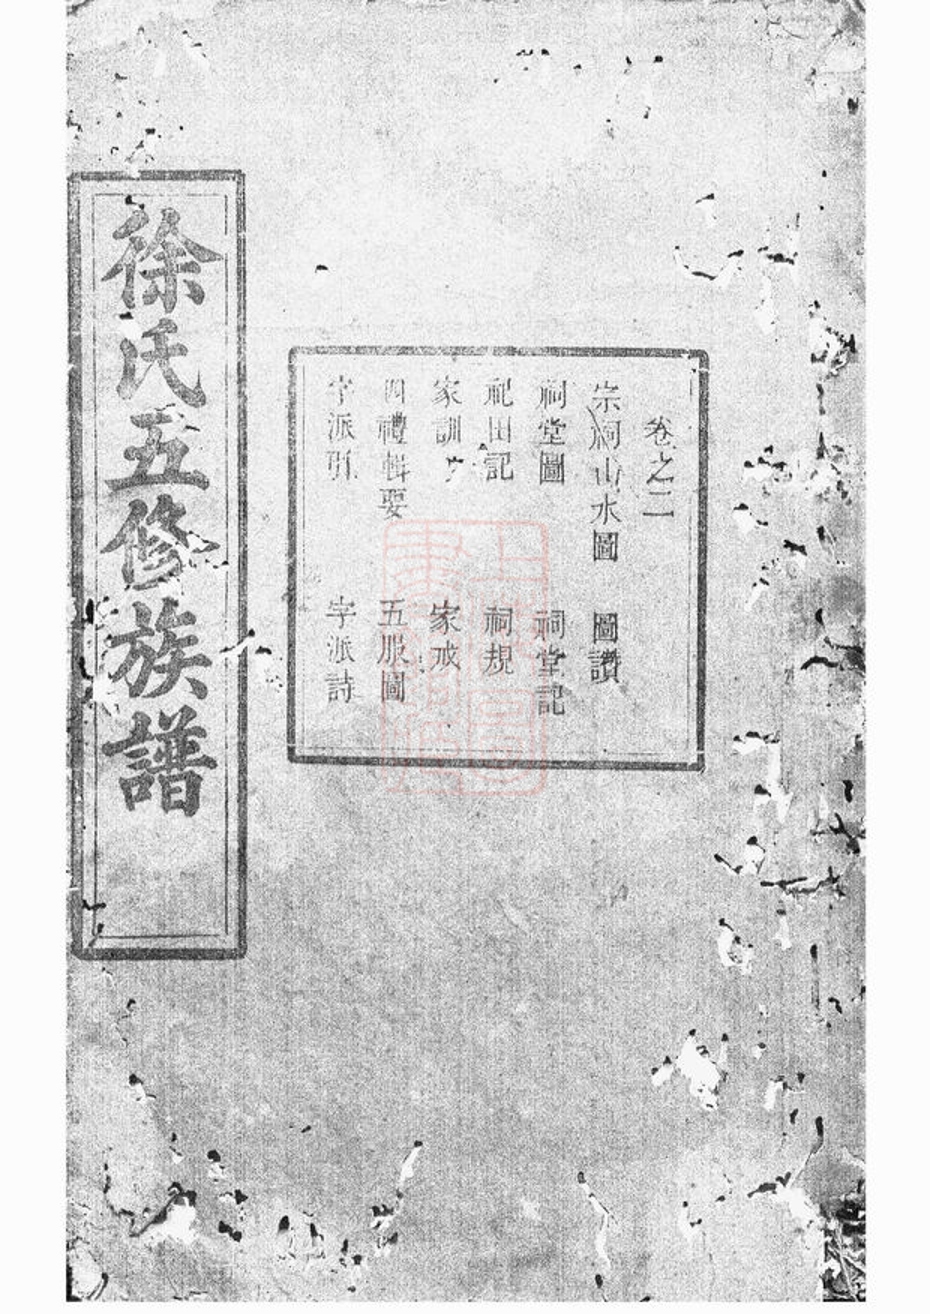 卷之二
宗祠山水圖 圖讚
祠堂圖 祠堂記
祀田記 祠規
家訓 家戒
四禮輯要 五服圖
字派引 字派詩
徐氏五修族譜